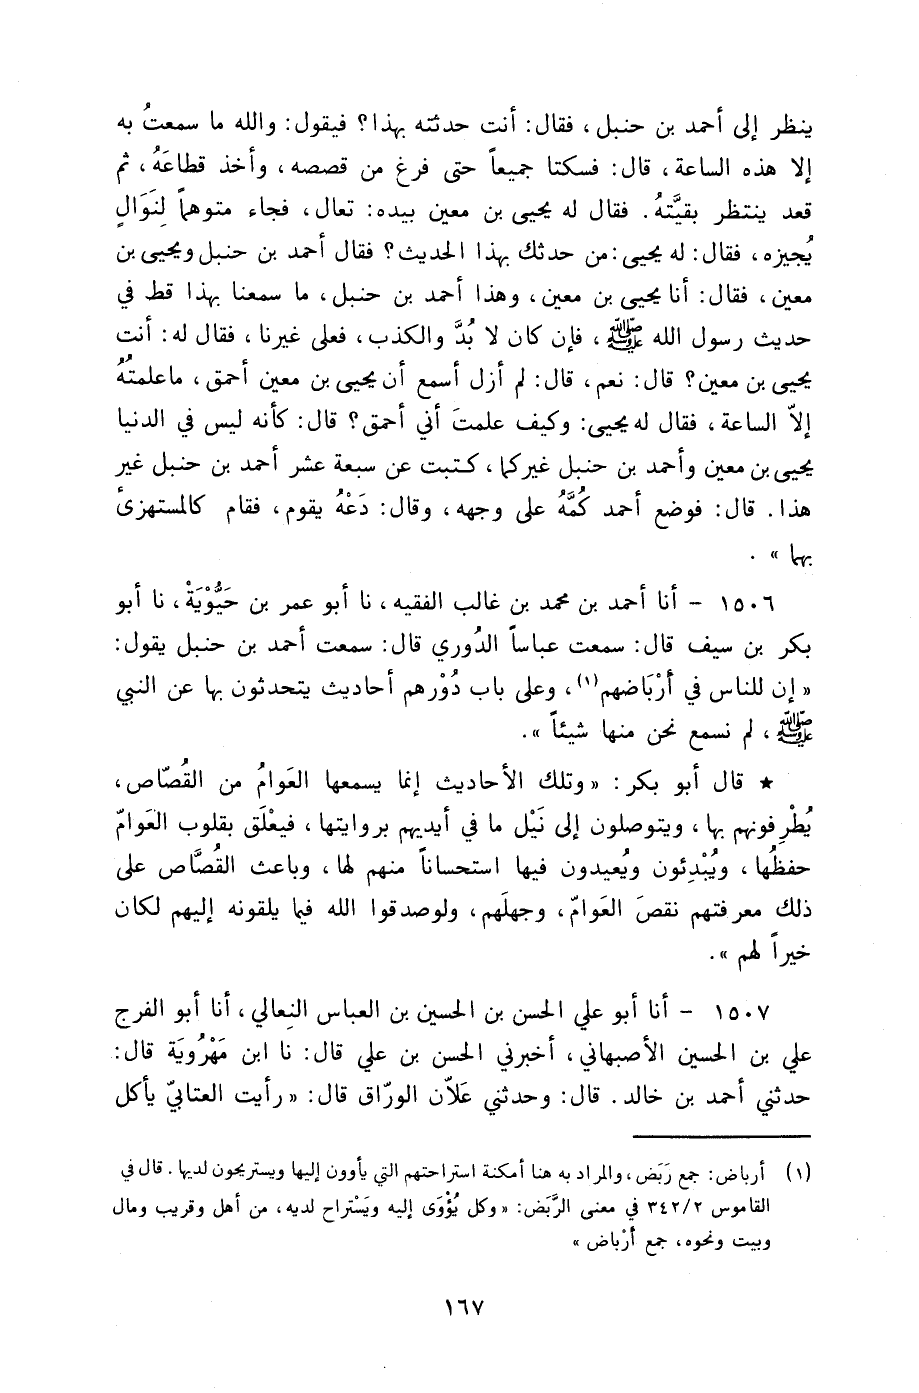 ينظر إلى أحمد بن حنبل، فقال: أنت حدثته بهذا؟ فيقول: والله ما سمعتُ به
إلا هذه الساعة، قال: فسكتا جميعاً حتى فرغ من قصصه، وأخذ قطاعَهُ، ثم
قعد ينتظر بقيَّتهُ. فقال له يحيى بن معين بيده: تعال، فجاء متوهماً لِنَوَالٍ
يُجيزه، فقال: له يحيى: من حدثك بهذا الحديث؟ فقال أحمد بن حنبل ويحيى بن
معين، فقال: أنا يحيى بن معين، وهذا أحمد بن حنبل، ما سمعنا بهذا قط في
حديث رسول الله ﷺ، فإن كان لا بُدَّ والكذب، فعلى غيرنا، فقال له: أنت
يحيى بن معين؟ قال: نعم، قال: لم أزل أسمع أن يحيى بن معين أحمق، ما علمتُهُ
إلاّ الساعة، فقال له يحيى: وكيف علمتَ أني أحمق؟ قال: كأنه ليس في الدنيا
يحيى بن معين وأحمد بن حنبل غيركما، كتبت عن سبعة عشر أحمد بن حنبل غير
هذا. قال: فوضع أحمد كُمَّهُ على وجهه، وقال: دَعْهُ يقوم، فقام كالمستهزئ
بهما».
١٥٠٦ - أنا أحمد بن محمد بن غالب الفقيه، نا أبو عمر بن حَيُّوْيَةْ، نا أبو
بكر بن سيف قال: سمعت عباساً الدُوري قال: سمعت أحمد بن حنبل يقول:
«إن للناس في أرْبَاضهم(١)، وعلى باب دُوْرهم أحاديث يتحدثون بها عن النبي
ﷺ، لم نسمع نحن منها شيئاً».
★ قال أبو بكر: «وتلك الأحاديث إنما يسمعها العَوامُ من القُصّاص،
يُطْرِفونهم بها، ويتوصلون إلى نَيْل ما في أيديهم بروايتها، فيعْلَق بقلوب العَوامّ
حفظُها، ويُبْدِئون ويُعيدون فيها استحساناً منهم لها، وباعث القُصَّاص على
ذلك معرفتهم نقصَ العَوامّ، وجهلَهم، ولو صدقوا الله فيما يلقونه إليهم لكان
خيراً لهم».
١٥٠٧ - أنا أبو علي الحسن بن الحسين بن العباس النِعالي، أنا أبو الفرج
علي بن الحسين الأصبهاني، أخبرني الحسن بن علي قال: نا ابن مَهْرُويَة قال:
حدثني أحمد بن خالد. قال: وحدثني عَلاّن الورّاق قال: «رأيت العتابيّ يأكل
(١) أرباض: جمع رَبَض، والمراد به هنا أمكنة استراحتهم التي يأوون إليها ويستريحون لديها. قال في
القاموس ٣٤٢/٢ في معنى الرَّبَض: «وكل يُؤْوَى إليه ويَسْتراح لديه، من أهل وقريب ومال
وبيت ونحوه، جمع أرْباض»
١٦٧